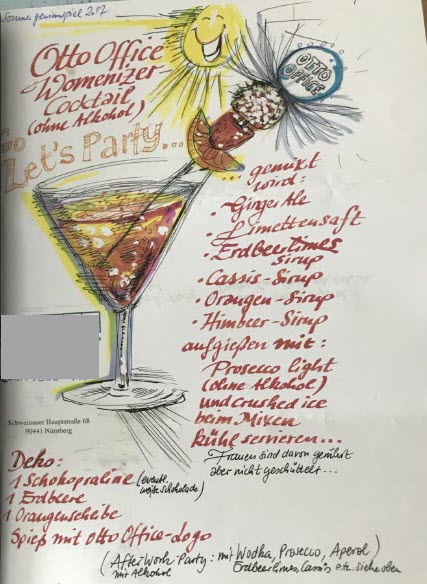 Sommergewinnspiel 2017
Otto Office
Womenizer-
Cocktail
(ohne Alkohol)
OTTO
OFFICE
GO
Let's Party...
... gemixt
wird:
• Ginger Ale
• Limettensaft
• Erdbeerlimes
sirup
• Cassis-Sirup
• Orangen-Sirup
• Himbeer-Sirup
aufgießen mit:
Prosecco light
(ohne Alkohol)
und crushed ice
beim Mixen
kühl servieren...
Frauen sind davon gerührt
aber nicht geschüttelt...
Schweinauer Hauptstraße 68
90441 Nürnberg
Deko:
1 Schokopraline (eventl.
weiße Schokolade)
1 Erdbeere
1 Orangenscheibe
Spieß mit Otto Office-Logo
(AfterWork-Party: mit Wodka, Prosecco, Aperol)
mit Alkohol Erdbeerlimes, Cassis etc. siehe oben